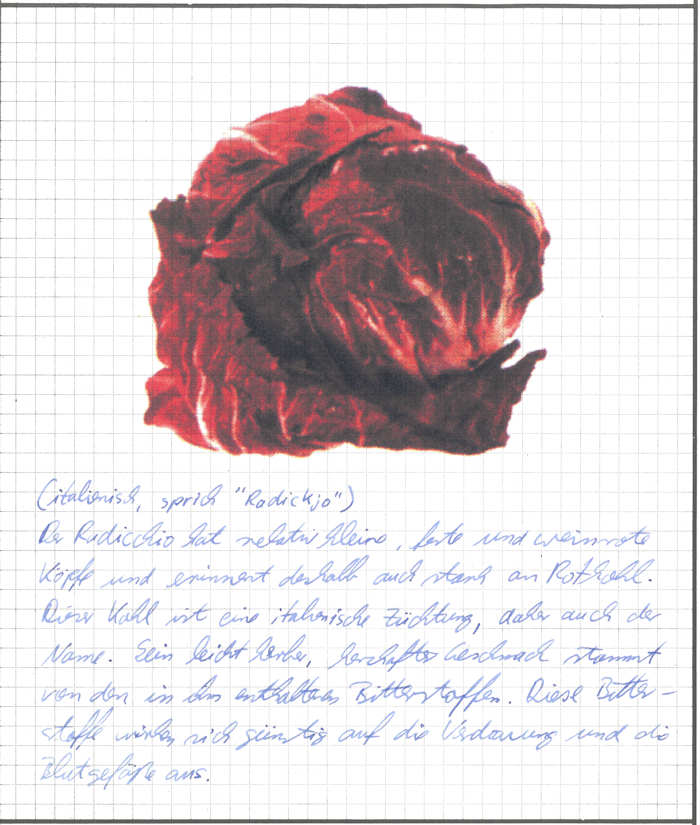 (italienisch, sprich "Radickjo")
Der Radicchio hat relativ kleine, feste und weinrote
Köpfe und erinnert deshalb auch stark an Rotkohl.
Dieser Kohl ist eine italienische Züchtung, daher auch der
Name. Sein leicht herber, herzhafter Geschmack stammt
von den in ihm enthaltenen Bitterstoffen. Diese Bitter-
stoffe wirken sich günstig auf die Verdauung und die
Blutgefäße aus.